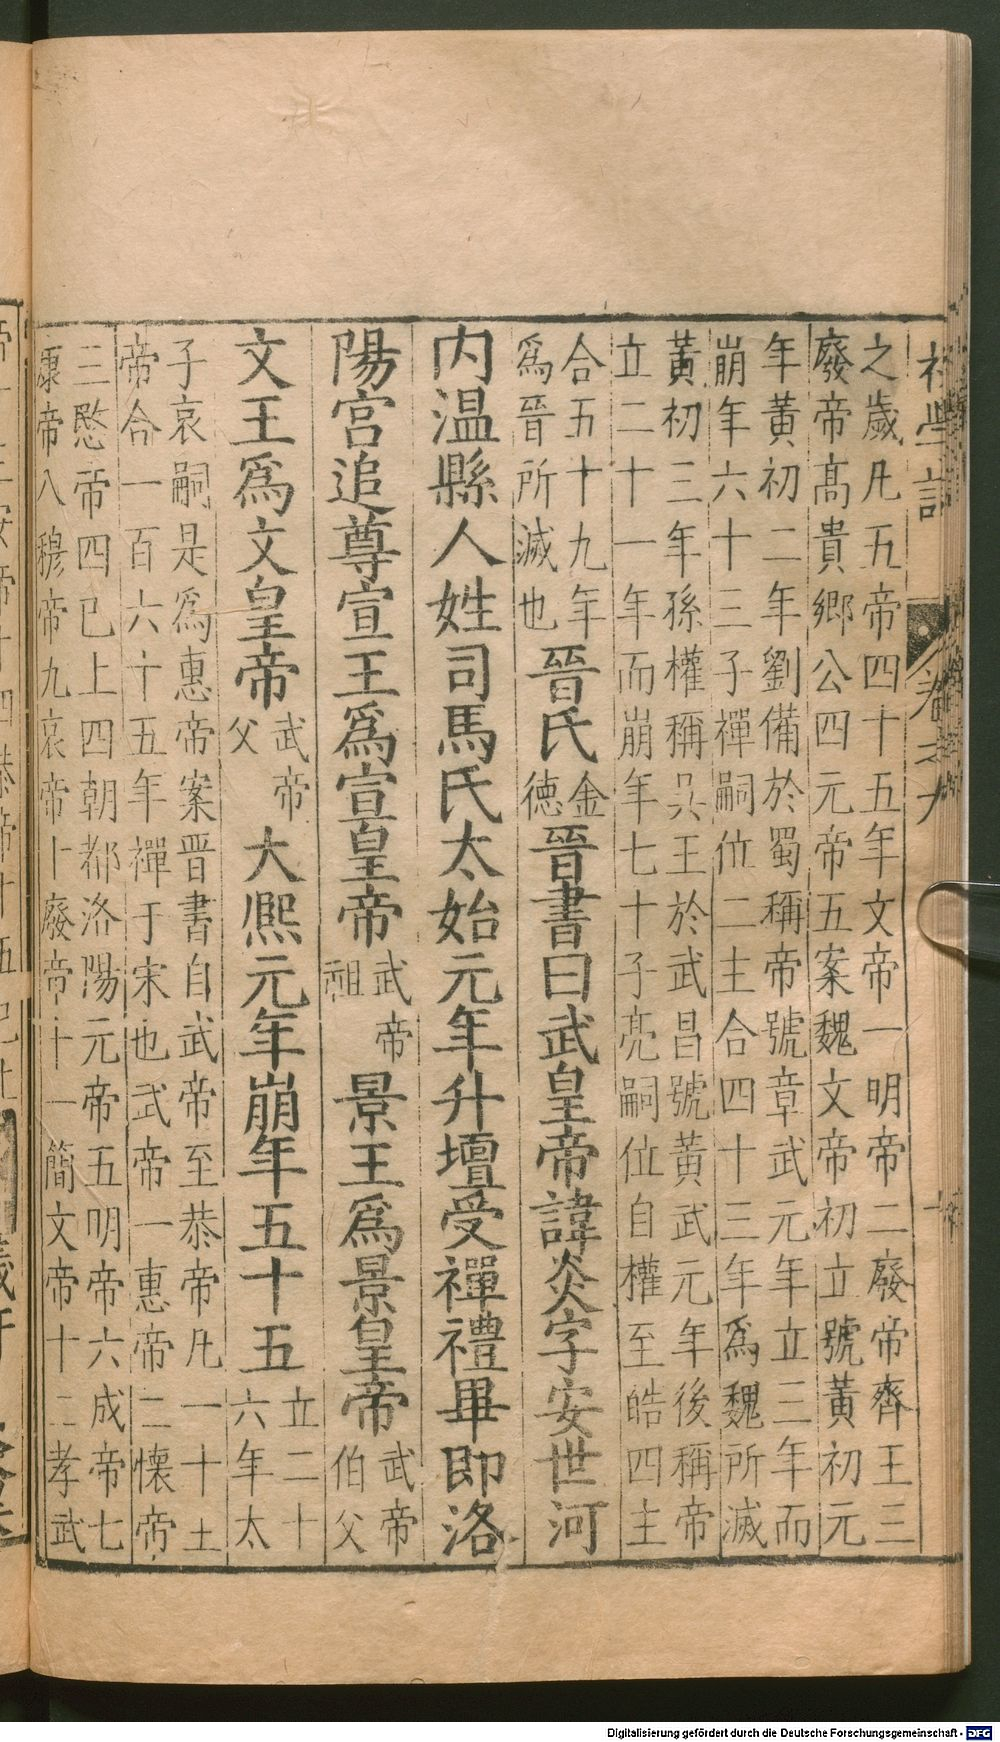 之歲凡五帝四十五年文帝一明帝二廢帝齊王三
廢帝髙貴鄉公四元帝五案魏文帝初立號黃初元
年黃初二年劉備於蜀稱帝號章武元年立三年而
崩年六十三子禪嗣位二主合四十三年爲魏所滅
黃初三年孫權稱吳王於武昌號黃武元年後稱帝
立二十一年而崩年七十子亮嗣位自權至皓四主
合五十九年
爲晉所滅也
晉氏
金
德
晉書曰武皇帝諱炎字安世河
内温縣人姓司馬氏太始元年升壇受禪禮畢即洛
陽宮追尊宣王爲宣皇帝
武帝
祖
景王爲景皇帝
武帝
伯父
文王爲文皇帝
武帝
父
大熈元年崩年五十五
立二十
六年太
子哀嗣是爲惠帝案晋書自武帝至恭帝凡一十五
帝合一百六十五年禪于宋也武帝一惠帝二懷帝
三愍帝四已上四朝都洛陽元帝五明帝六成帝七
康帝八穆帝九哀帝十廢帝十一簡文帝十二孝武
Digitalisierung gefördert durch die Deutsche Forschungsgemeinschaft - DFG